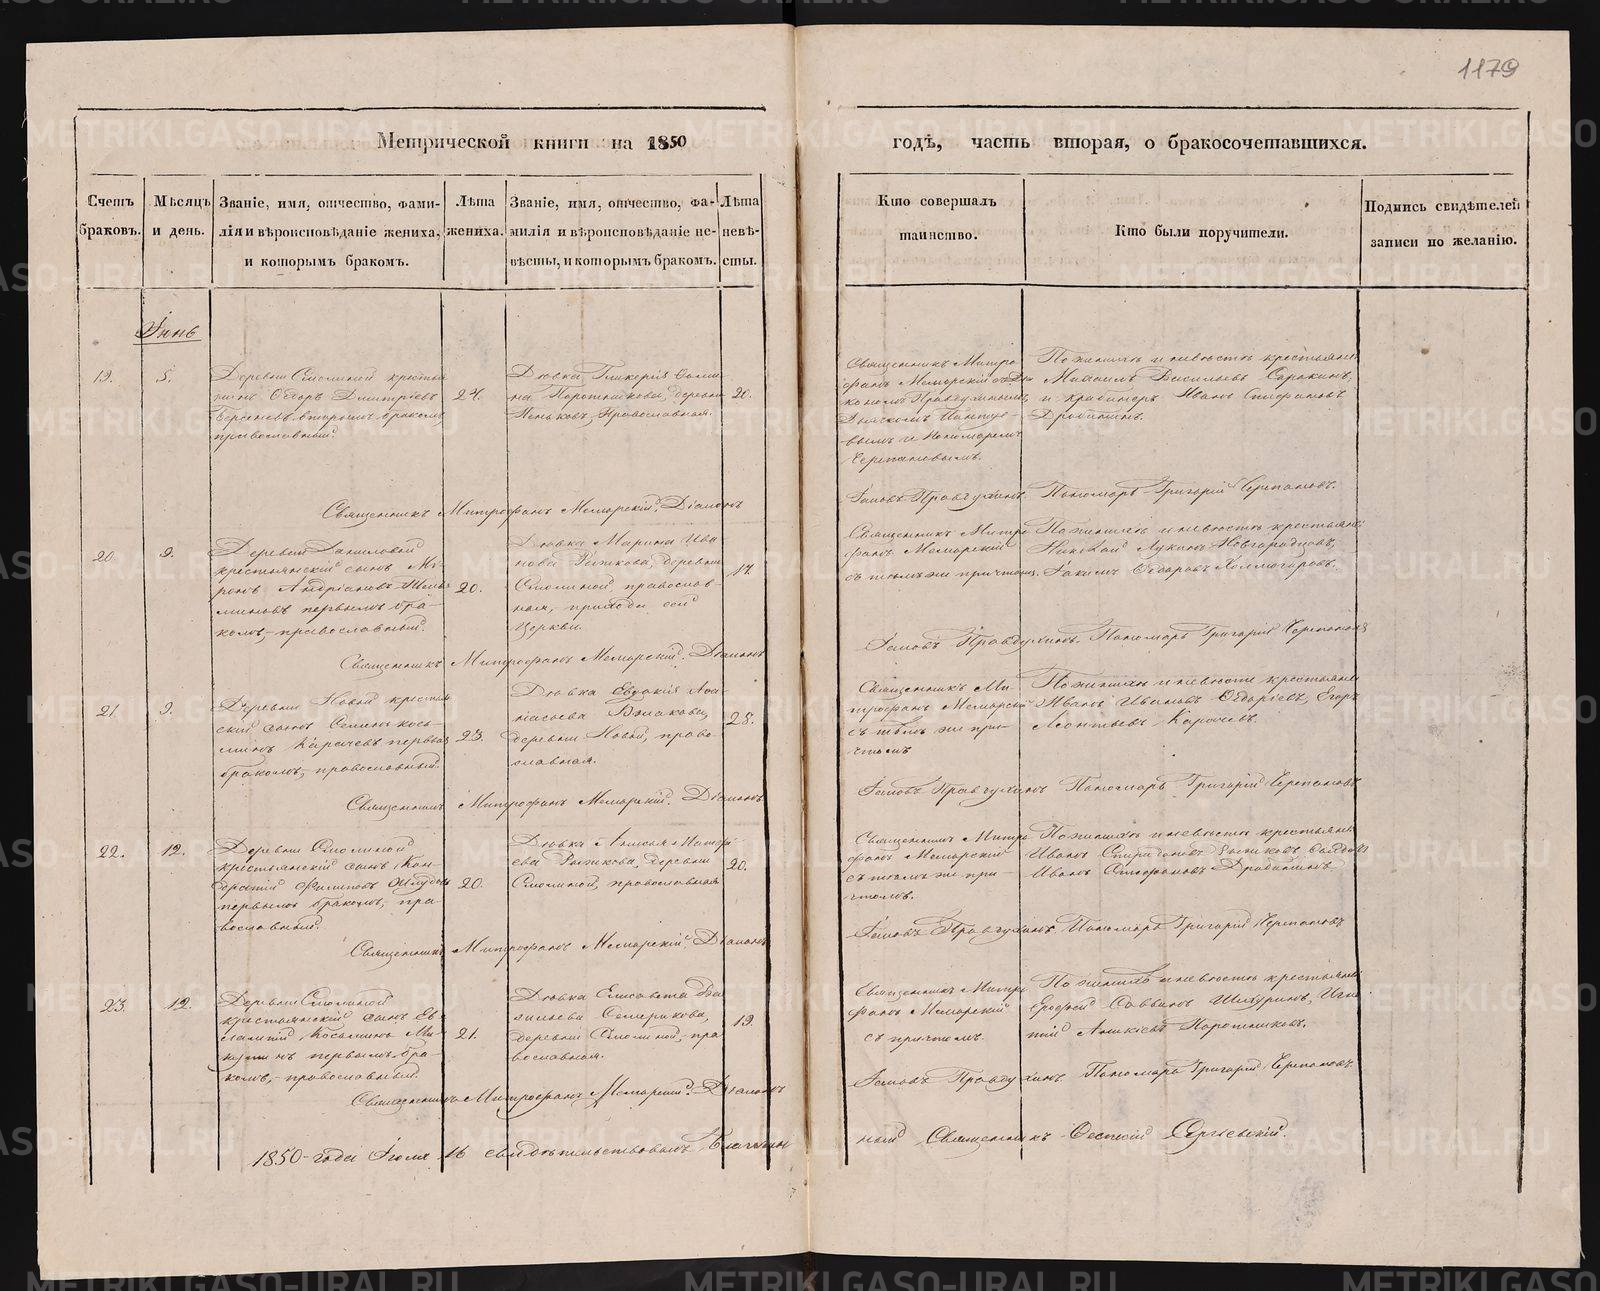 1179
Метрической книги на 1850
годъ, часть вторая, о бракосочетавшихся.
Счетъ браковъ.
Мѣсяцъ и день.
Званіе, имя, отчество, фами-
лія и вѣроисповѣданіе жениха,
и которымъ бракомъ.
Лѣта
жениха.
Званіе, имя, отчество, фа-
милія и вѣроисповѣданіе не-
вѣсты, и которымъ бракомъ.
Лѣта
невѣ-
сты.
Кто совершалъ
таинство.
Кто были поручители.
Подпись свидѣтелей
записи по желанію.
Іюнь
19.
5.
Деревни Смолиной крестья
нинъ Ѳедоръ Дмитріевъ
вторымъ бракомъ
православный.
24.
Дѣвка Гликерія
Порошникова, деревни
Православная.
20.
Священникъ Митро
фанъ Меморскій съ Діа
кономъ Правдухинымъ,
Дьячкомъ
вымъ и Пономаремъ
Черепановымъ.
По женихѣ и невѣстѣ крестьяне
Михаилъ Васильевъ Сорокинъ,
и Иванъ Стефановъ
Дробининъ.
Священникъ Митрофанъ Меморскій. Діаконъ
Іаковъ Правдухинъ. Пономарь Григорій Черепановъ.
20.
9.
Деревни Даниловой
крестьянскій сынъ Ми-
ронъ Андріановъ
первымъ бра-
комъ, православный.
20.
Дѣвка Марина Ива
нова Рыжкова, деревни
Смолиной, православ-
ная, прихода сей
Церкви.
17.
Священникъ Митро
фанъ Меморскій
съ тѣмъ же причтомъ.
По женихѣ и невѣстѣ крестьяне
Николай Лукинъ Новгородцовъ,
Іакимъ Ѳедоровъ Холмогоровъ.
Священникъ Митрофанъ Меморскій. Діаконъ
Іаковъ Правдухинъ. Пономарь Григорій Черепановъ
21.
9.
Деревни Новой крестьян
скій сынъ Семенъ Кось-
минъ Карачевъ первымъ
бракомъ, православный.
23.
Дѣвка Евдокія Аѳа-
насьева
деревни Новой, право-
славная.
28.
Священникъ Ми-
трофанъ Меморскій
съ тѣмъ же при-
чтомъ
По женихѣ и невѣстѣ крестьяне
Иванъ Ивановъ Егоръ
Леонтьевъ Карачевъ.
Священникъ Митрофанъ Меморскій. Діаконъ
Іаковъ Правдухинъ Пономарь Григорій Черепановъ
22.
12.
Деревни Смолиной
крестьянскій сынъ Кон-
дратій Филиповъ
первымъ бракомъ, пра
вославный.
20.
Дѣвка
Рыжкова, деревни
Смолиной, православная
20.
Священникъ Митро
фанъ Меморскій
съ тѣмъ же при-
чтомъ.
По женихѣ и невѣстѣ крестьяне
Иванъ Спиридоновъ
Иванъ Стефановъ Дробининъ.
Священникъ Митрофанъ Меморскій. Діаконъ
Іаковъ Правдухинъ. Пономарь Григорій Черепановъ
23.
12.
Деревни Смолиной
крестьянскій сынъ Ев
лампій Косьминъ Ми-
первымъ бра-
комъ, православный.
21.
Дѣвка Елисавета Ва
сильева Семерикова,
деревни Смолиной, пра
вославная.
19.
Священникъ Митро
фанъ Меморскій
съ причтомъ.
По женихѣ и невѣстѣ крестьяне
Ерофей Саввинъ Игна
тій Аникіевъ Порошниковъ.
Священникъ Митрофанъ Меморскій. Діаконъ
Іаковъ Правдухинъ. Пономарь Григорій Черепановъ
1850 года Іюля 16 свидѣтельствовалъ Благочин
ный Священникъ Сергіевскій.
METRIKI.GASO-URAL.RU